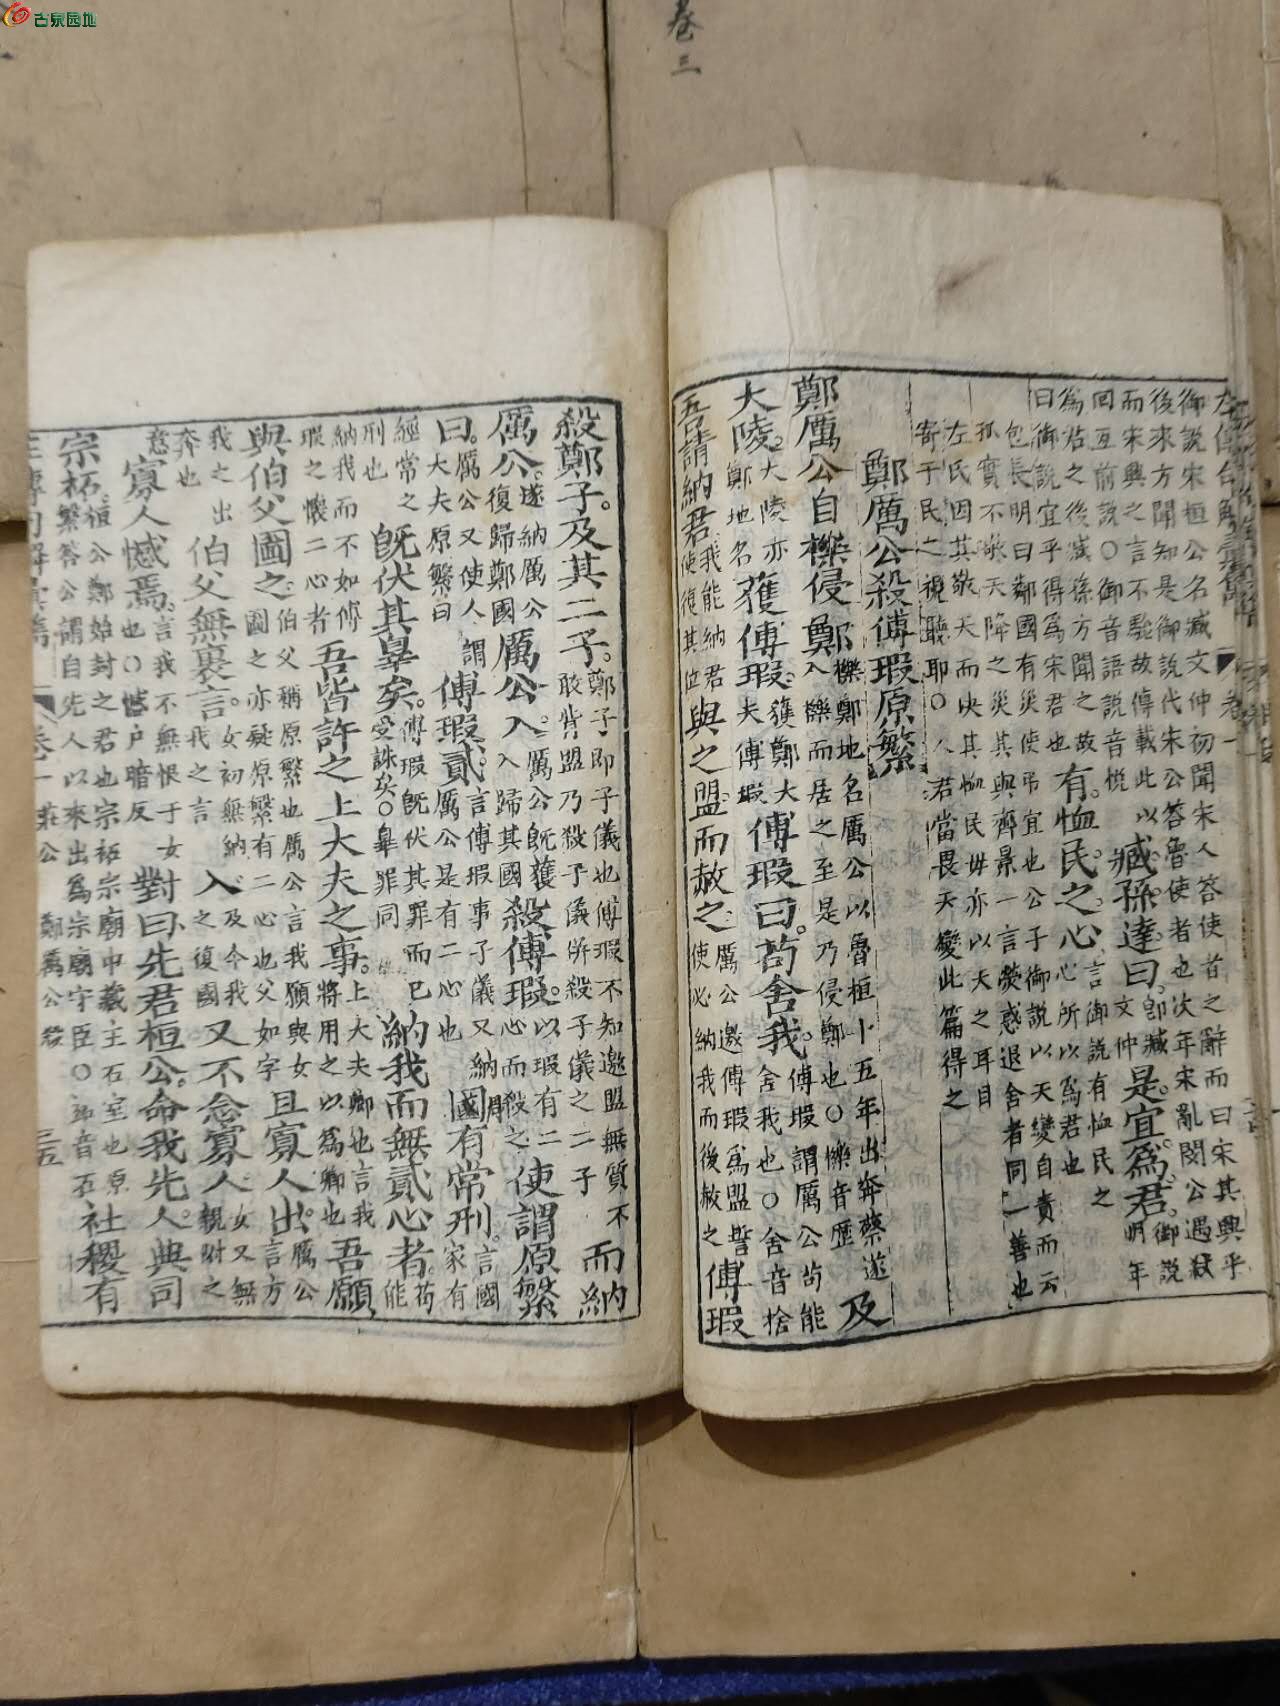 古泉园地
卷三
御說宋桓公名臧文仲初聞宋人答使者之辭而曰宋其興乎
後來方聞知是御說代宋公答魯使者也次年宋亂閔公遇弑
而宋興之言不驗故傳載此以臧孫達曰即臧文仲是宜為君御說明年
為君之後臧孫方聞之故有恤民之心言御說有恤民之心所以為君也
曰御說宜乎得為宋君也
包長明曰鄰國有災使弔宜也公子御說以天變自責而云
孤實不敬天降之災其與齊景一言熒惑退舍者同一善也
左氏因其敬天而決其恤民毋亦以天之耳目
寄于民之視聽耶○人君當畏天變此篇得之
鄭厲公殺傅瑕原繁
鄭厲公自櫟侵鄭櫟鄭地名厲公以魯桓十五年出奔蔡遂入櫟而居之至是乃侵鄭也○櫟音歷及
大陵大陵亦鄭地名獲傅瑕獲鄭大夫傅瑕傅瑕曰苟舍我傅瑕謂厲公苟能舍我也○舍音捨
吾請納君我能納君使復其位與之盟而赦之厲公邀傅瑕為盟誓使必納我而後赦之傅瑕
殺鄭子及其二子鄭子即子儀也傅瑕不知邀盟無質不敢背盟乃殺子儀併殺子儀之二子而納
厲公遂納厲公復歸鄭國厲公入厲公既獲入歸其國殺傅瑕以瑕有二心而殺之使謂原繁
曰厲公又使人謂大夫原繁曰傅瑕貳言傅瑕事子儀又納厲公是有二心也周有常刑言國家有
經常之刑也既伏其辠矣傅瑕既伏其罪而已受誅矣○辠罪同納我而無貳心者苟能
納我而不如傅瑕之懷二心者吾皆許之上大夫之事上大夫卿也言我將用之以為卿也吾願
與伯父圖之伯父稱原繁也厲公言我願與女圖之亦疑原繁有二心也父如字且寡人出厲公言方
我之出奔也伯父無裏言女初無納我之言入及今我之復國又不念寡人女又無親附之
意寡人憾焉言我不無恨于女也○憾戶暗反對曰先君桓公命我先人典司
宗祏繁答公謂自桓公鄭始封之君也宗祏宗廟中藏主石室也原先人以來出為宗廟守臣○祏音石社稷有
卷一 莊公 鄭厲公殺 三五